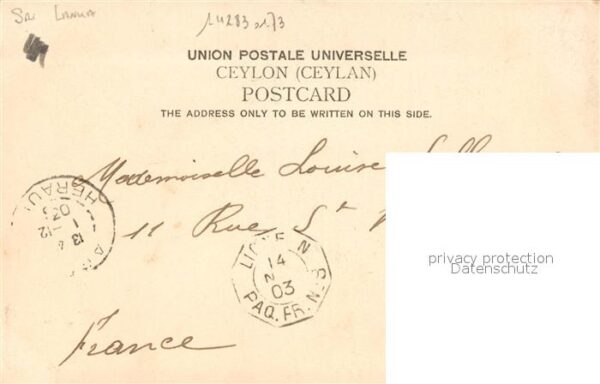 Sri Lanka
14283273
UNION POSTALE UNIVERSELLE
CEYLON (CEYLAN)
POSTCARD
THE ADDRESS ONLY TO BE WRITTEN ON THIS SIDE.
Mademoiselle Louise
11 Rue St
HERAULT
13
LIGNE N
14
03
PAQ. FR. N. 3
France
privacy protection
Datenschutz